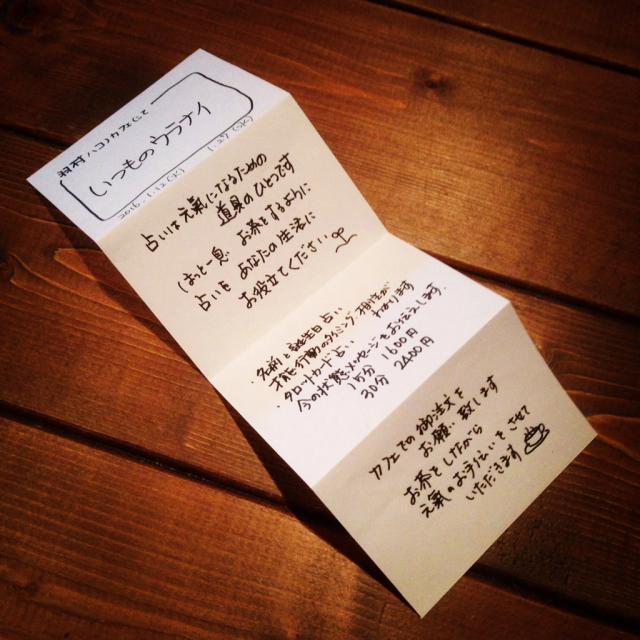 羽村 ハコカフェにて
いつものウラナイ
2016.1.12(火) 1.27(水)
占いは元氣になるための
道具のひとつです
ほっと一息 お茶をするように
占いを あなたの生活に
お役立てください
・名前と誕生日占い
才能 行動のタイミング 相性が わかります
・タロットカード占い
今の状態とメッセージをお伝えします.
15分 1600円
30分 2600円
カフェでの御注文を
お願い致します
お茶をしながら
元氣の お手伝いを させて
いただきます